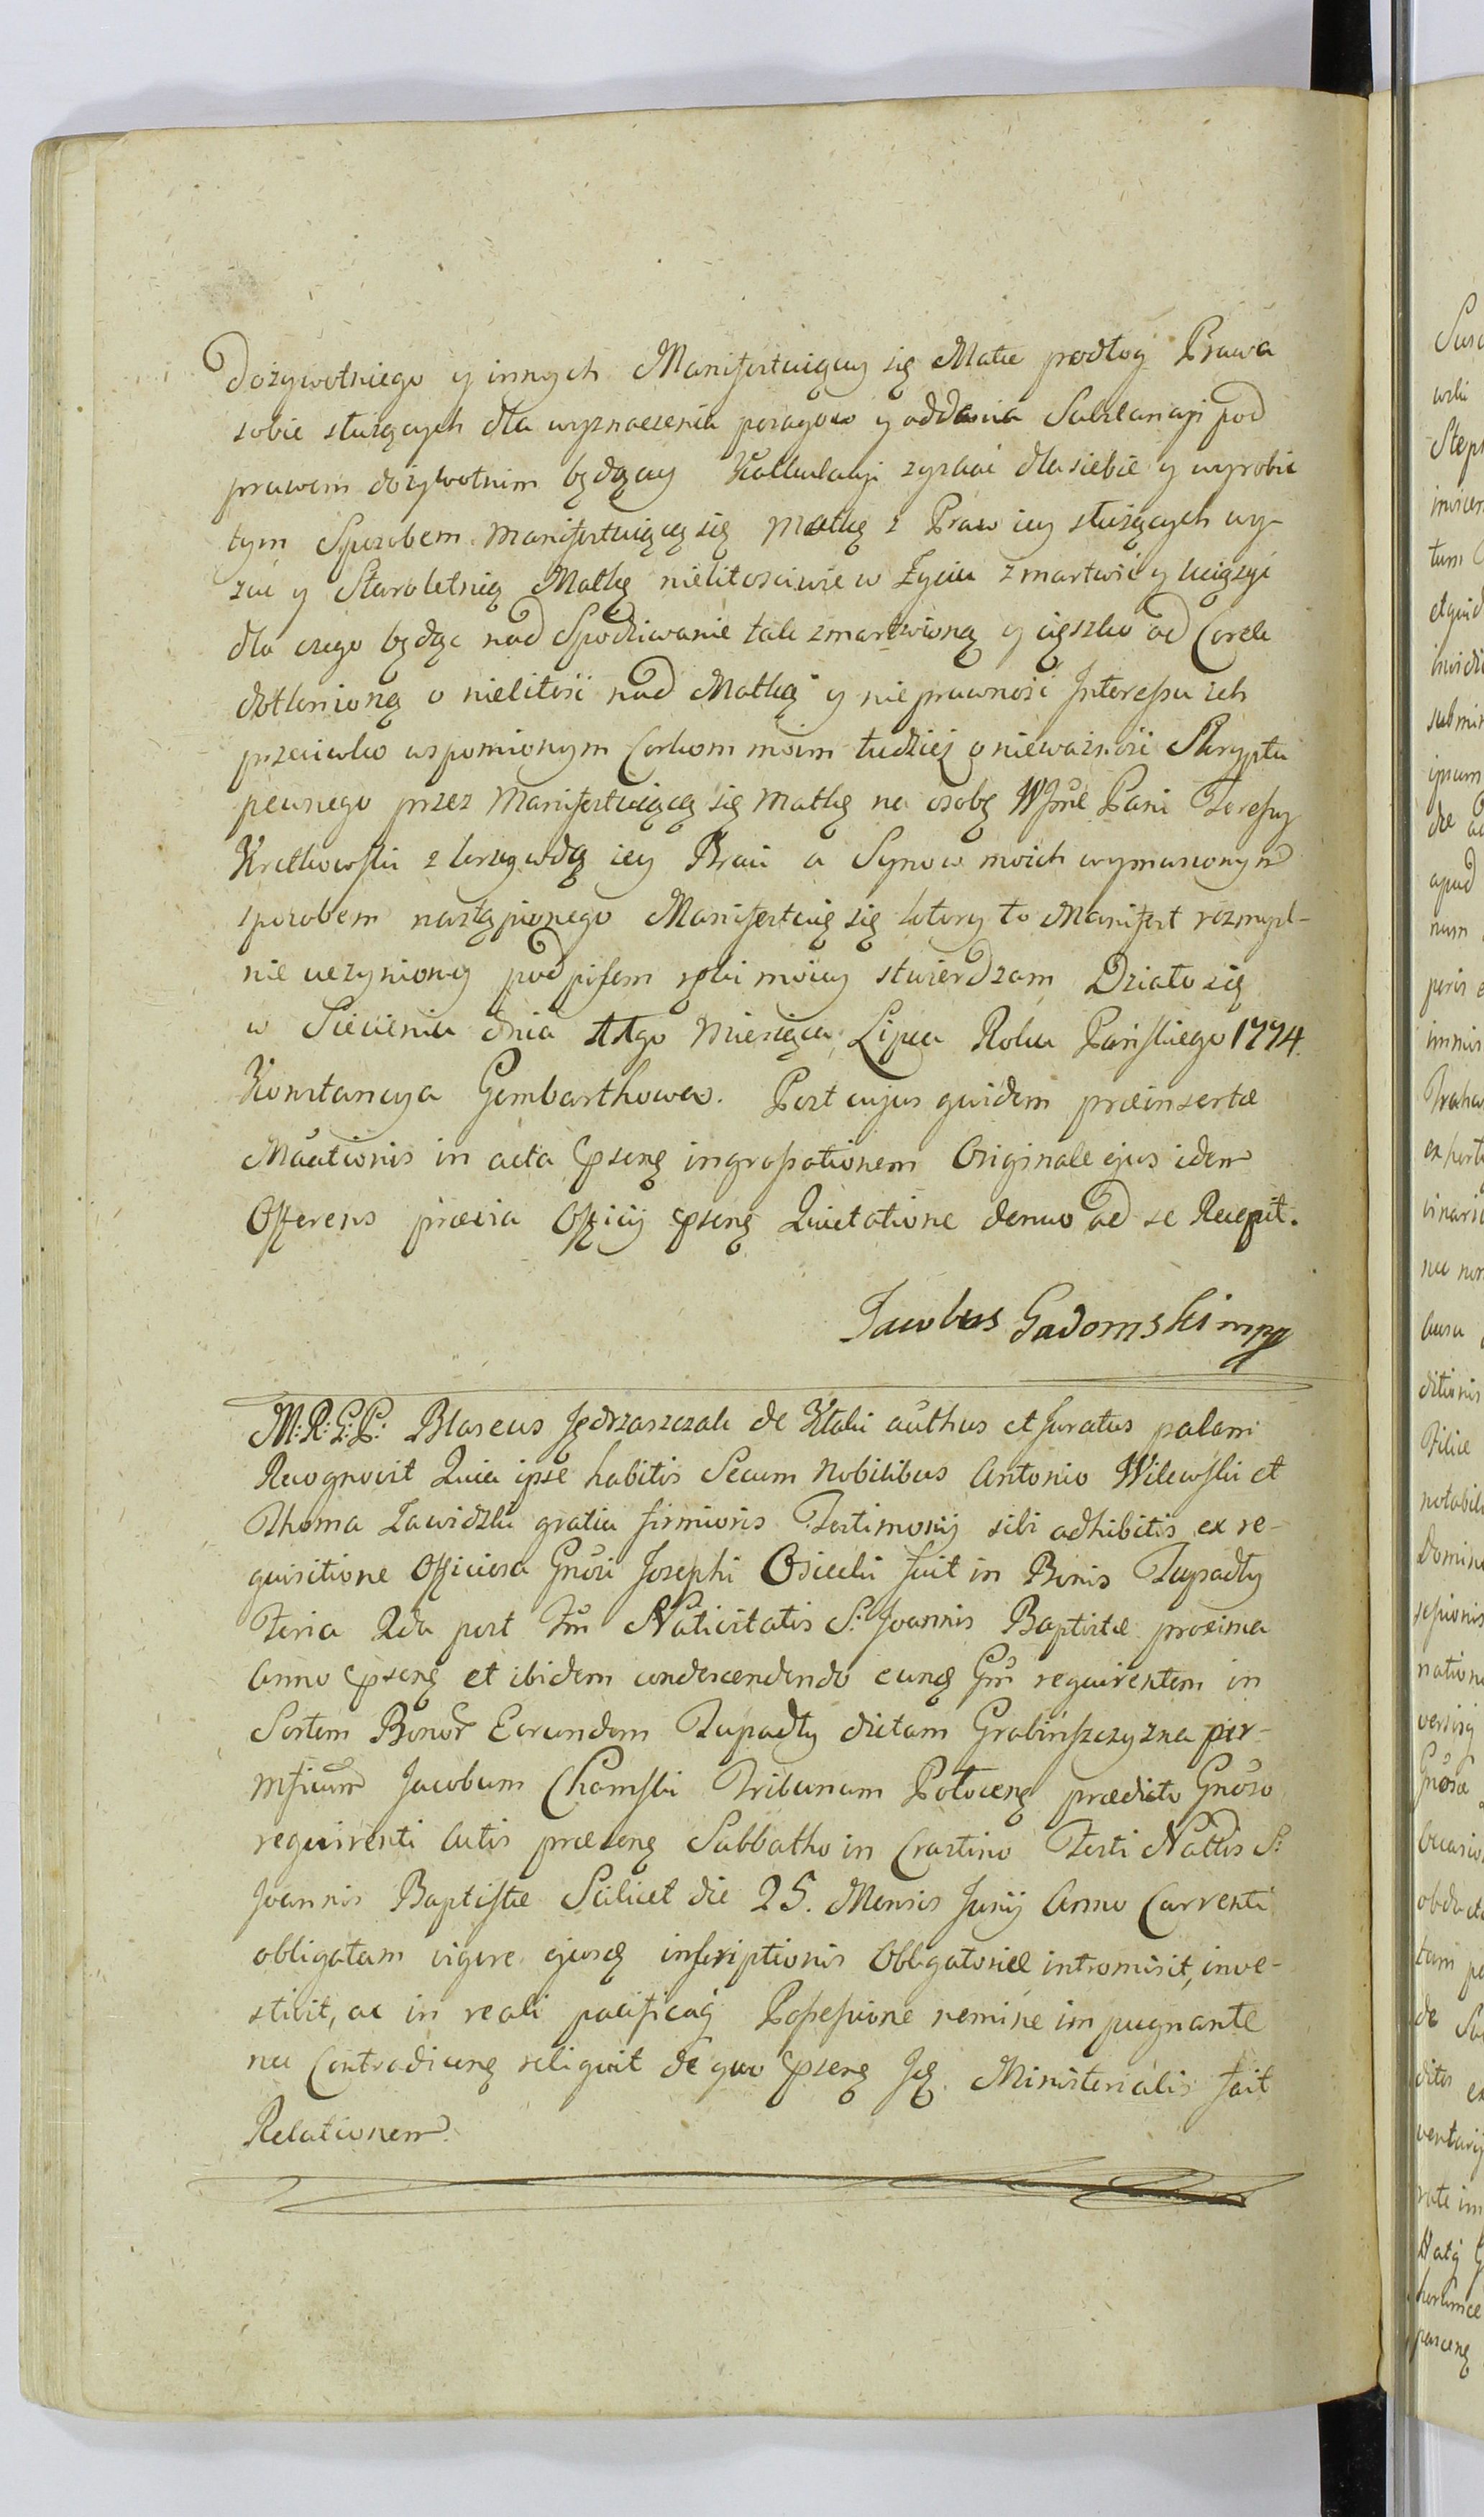 Dozywotniego y innych Manifestuiącey się Matce podłóg Prawa
sobie służących dla wyznaczenia posagow y oddania Substancyi pod
prawem dożywotnim będącey Kalkulacyi zyskać dla siebie y wyrobić
tym Sposobem Manifestuiącą się Matkę z Praw iey służących wy-
zuć y Staroletnią Matkę nielitosciwie w Zyciu zmartwić y uciązyć
dla czego będąc nad Spodziwanie tak zmartwioną y cięszko od Corek
dotknioną o nielitość nad Matką y nieprawność Interessu ich
przeciwko wspomionym Corkom moim tudziez o nieważności Skryptu
pewnego przez Manifestuiącą się Matkę na osobę WJmć Pani Teressy
Kretkowski z krzywdą iey Braci a Synow moich wymuszonym
sposobem nastąpionego Manifestuię się ktory to Manifest rozmysl-
nie uczyniony podpisem ręki moiey stwierdzam Działo się
w Siecieniu dnia 11go Miesiąca Lipca Roku Pańskiego 1774.
Konstancya Gembarthowa. Post cujus quidem præinsertæ
Mâationis in acta psentą ingrossationem Originale ejus idem
Offerens prævia Officij psentą Quietatione denuo ad se Recepit.
Jacobus Gadomski mpp
M: R: G: P: Blaseus Jędrzaszczak de Kłaki aûthus et Juratus palam
Recognovit Quia ipse habitis Secum Nobilibus Antonio Wilewski et
Thoma Zawidzki gratia firmioris Testimonij sibi adhibitis ex re-
quisitione Officiosa Gnôsi Josephi Osiecki fuit in Bonis Zupadły
Feria 2da post Fm̃ Nativitatis S: Joannis Baptistæ proxima
Anno psentę et ibidem condescendendo eunę Gm̃ requirentem in
Sortem Bonor Eorundem Zupadły dictam Grabińszczyzna per
Mficum Jacobum Chamski Tribunum Płocenę prædicto Gnôso
requirenti Actis præsenę Sabbatho in Crastino Festi Nattis S:
Joannis Baptistæ Scilicet die 25. Mensis Junij Anno Currenti
obligatam vigore ejusę inscriptionis Obligatoriæ intromisit, inve-
stivit, ac in reali pacificaq́ Possessione nemine impugnante
nec Contradicenę reliquit de quo psenę Ję. Ministerialis fcit
Relationem.